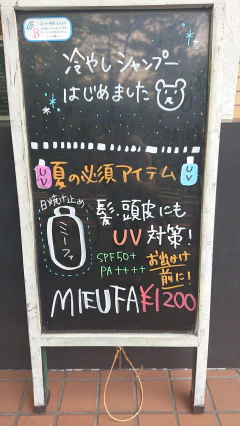 冷やしシャンプー
はじめました
夏の必須アイテム
UV
UV
日焼け止め
ミーファ
髪、頭皮にも
UV対策!
SPF50+
PA++++
お出かけ
前に!
MIEUFA¥1200